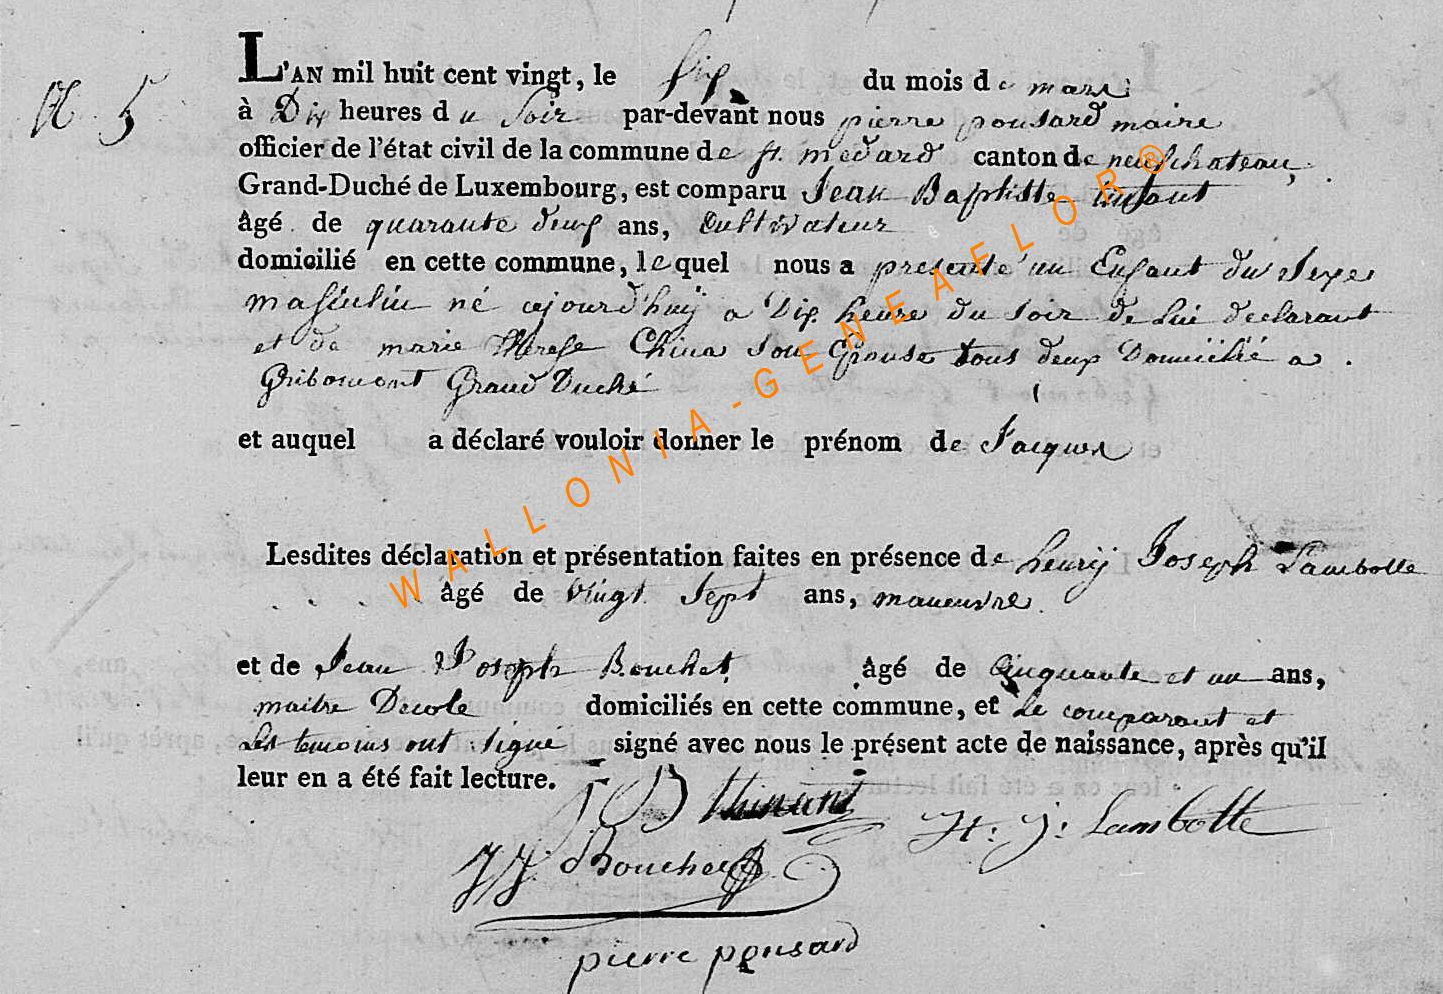 N 5
L'AN mil huit cent vingt, le six du mois de mars
à Dix heures du Soir par-devant nous pierre ponsard maire
officier de l'état civil de la commune de st. medard canton de neufchateau,
Grand-Duché de Luxembourg, est comparu Jean Baptiste
âgé de quarante deux ans, Cultivateur
domicilié en cette commune, lequel nous a presenté un Enfant du Sexe
masculin né ajourd'huij a Dix heure du Soir de Lui declarant
et de marie Therese China Son Epouse tous deux Domicilié a
Gribomont Grand Duché
et auquel a déclaré vouloir donner le prénom de Jacques
Lesdites déclaration et présentation faites en présence de henrij Joseph Lambotte
âgé de vingt Sept ans, maneuvre.
et de Jean Joseph Bouchet âgé de Cinquante et un ans,
maitre Decole domiciliés en cette commune, et Le comparant et
Les temoins ont signé signé avec nous le présent acte de naissance, après qu'il
leur en a été fait lecture.
J B
H: J: Lambotte
J J Bouchet
pierre ponsard
WALLONIA-GENEAELOR®